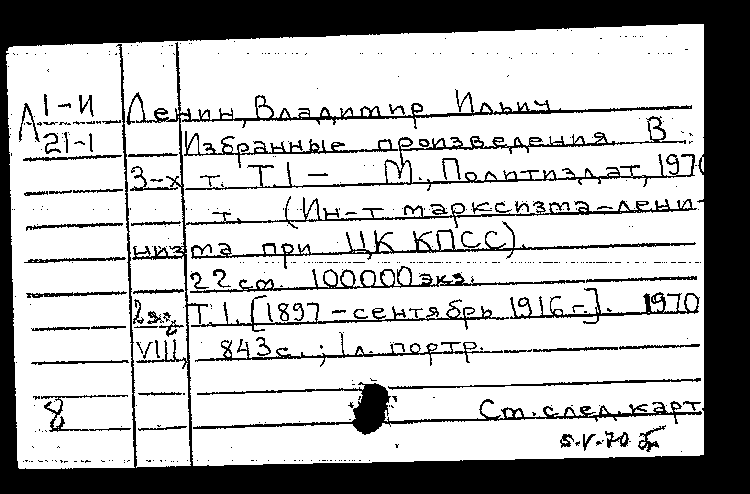 А 1-И Ленин, Владимир Ильич.
21-1 Избранные произведения. В
3-х т. Т.1 – М., Политиздат, 1970
т. (Ин-т марксизма-лени-
низма при ЦК КПСС).
22 см. 100000 экз.
2экз. Т.1. [1897 – сентябрь 1916 г.]. 1970
VIII, 843 с.; 1 л. портр.
8 См. след. карт.
5.V.70